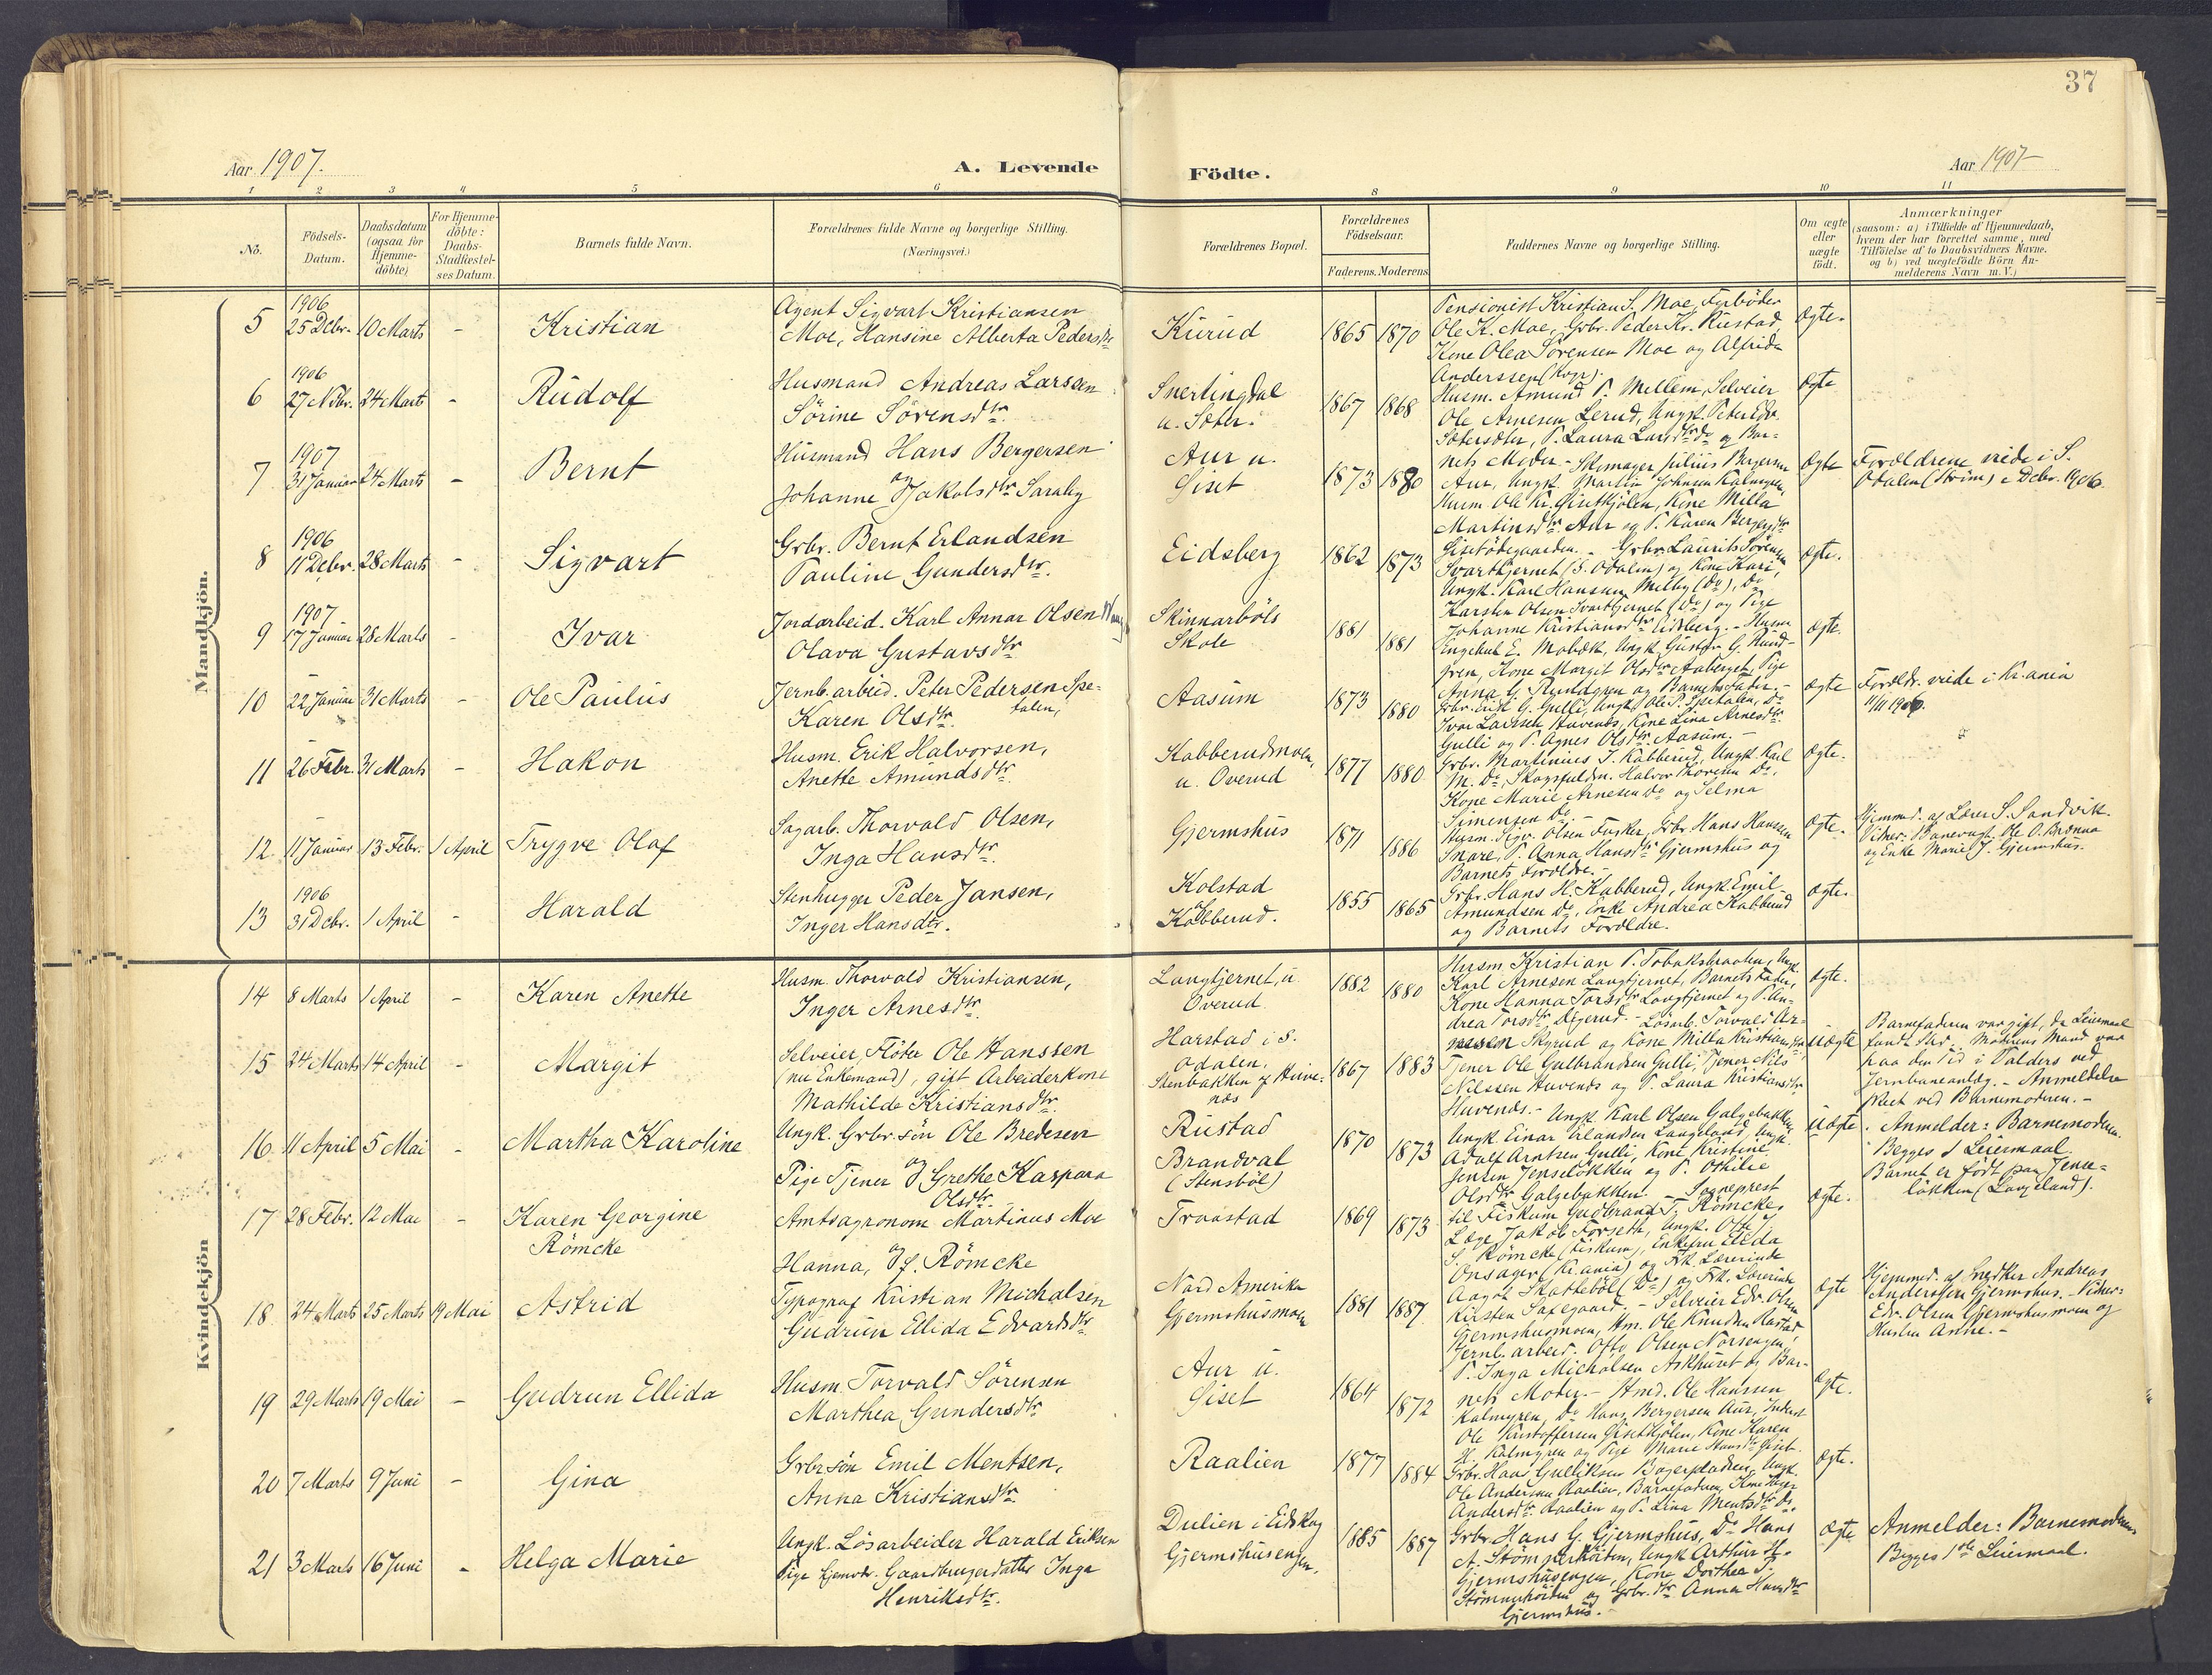 37
Aar 1907.
A. Levende
Födte.
Aar 1907
1 2 3 4 5 6 8 9 10 11
No.
Födsels-
Datum.
Daabsdatum
(ogsaa for
Hjemme-
döbte)
For Hjemme-
döbte:
Daabs-
Stadfæstel-
ses Datum.
Barnets fulde Navn.
Forældrenes fulde Navne og borgerlige Stilling.
(Næringsvei.)
Forældrenes Bopæl.
Forældrenes
Födselsaar.
Faderens. Moderens.
Faddernes Navne og borgerlige Stilling.
Om ægte
eller
uægte
födt.
Anmærkninger
(saasom: a) i Tilfælde af Hjemmedaab,
hvem der har forrettet samme, med
Tilföielse af to Daabsvidners Navne.
og b) ved uægtefödte Börn An-
melderens Navn m. V.)
Mandkjön.
5
1906
25 Dcbr.
10 Marts
-
Kristian
Agent Sigvart Kristiansen
Moe, Hansine Alberta Pedersdtr
Kurud
1865
1870
Pensionist Kristian S. Moe, Forböder
Ole K. Moe, Grbr. Peder Kr. Rustad,
Kone Olea Sörensen Moe og Alfrida
Anderssen
Ægte.
6
1906
27 Nvbr.
24 Marts
-
Rudolf
Husmand Andreas Larssen
Sörine Sörensdtr.
Snertingdal
u. Sæter.
1867
1868
Husm. Amund P. Mellem, Selveier
Ole Arnesen Lerud, Ungk. Peter Edv.
Sætersæter, P. Laura Larsdtr Do og Bar-
nets Moder.
Ægte
7
1907
31 Januar
24 Marts
-
Bernt
Husmand Hans Bergersen
og
Johanne Jakobsdtr Saraby
Aur u.
Siset
1873
1880
- Skomager Julius Bergersen
Aur, Ungk. Martin Johnsen Kalmyren,
Husm. Ole Kr. Gisetkjölen, Kone Milla
Martinsdtr. Aur og P. Karen Bergersdtr
Gisetödegaarden.
Ægte
Forældrene viede i S.
Odalen (Ström) i Dcbr. 1906.
8
1906
11 Dcbr.
28 Marts
-
Sigvart
Grbr. Bernt Erlandsen
Pauline Gundersdtr.
Eidsberg
1862
1873
- Grbr. Laurits Sörensen
Svarttjernet (S. Odalen) og Kone Kari,
Ungk. Karl Hanssen Melby (Do), Do
Karsten Olsen Svarttjernet (Do) og Pige
Johanne Kristiansdtr Eidsberg.
Ægte.
9
1907
17 Januar
28 Marts
-
Ivar
Jordarbeid. Karl Annar Olsen
Olava Gustavsdtr
Skinnarböls
Skole
1881
1881
- Husm.
Engebret E. Mobæk, Ungk. Gustav G. Rund-
gren, Kone Margit Olsdtr Aaberget, Pige
Anna G. Rundgren og Barnets Fader.
Ægte.
10
22 Januar
31 Marts
-
Ole Paulus
Jernb.arbeid. Peter Pedersen Spe-
talen,
Karen Olsdtr.
Aasum
1873
1880
Grbr. Erik G. Gulli, Ungk. Ole P. Spetalen, Do
Ivar Larssen Huvenæs, Kone Lina Arnesdtr
Gulli og P. Agnes Olsdtr. Aasum.
Ægte
Forældr. viede i Kr.ania
11/11 1906.
11
26 Febr.
31 Marts
-
Hakon
Husm. Erik Halvorsen,
Anette Amundsdtr.
Kabberudmoen,
u. Overud
1877
1880
Grbr. Martinius J. Kabberud, Ungk. Karl
M. Do, Skogsfuldm. Halvor Thoresen Do,
Kone Marie Arnesen Do og Selma
Simensen Do.
Ægte.
12
11 Januar
13 Febr.
1 April
Trygve Olaf
Sagarb. Thorvald Olsen,
Inga Hansdtr.
Gjermshus
1871
1886
Husm. Sigv. Olsen Fusker, Grbr. Hans Hanssen
Snare, P. Anna Hansdtr Gjermshus og
Barnets Forældre.
Ægte.
Hjemmed. af Lærer S. Sandvik.
Vidner: Banevogt. Ole O. Brænna
og Enke Marie J. Gjermshus.
13
1906
31 Dcbr.
1 April
-
Harald
Stenhugger Peder Jansen,
Inger Hansdtr.
Kolstad
af
Kabberud.
1855
1865
Grbr. Hans H. Kabberud, Ungk. Emil
Amundsen Do, Enke Andrea Kabberud
og Barnets Forældre.
Ægte.
Kvindekjön
14
8 Marts
1 April
-
Karen Anette
Husm. Thorvald Kristiansen,
Inger Arnesdtr.
Langtjernet, u
Overud
1882
1880
Husm. Kristian P. Tobaksbraaten, Ungk.
Karl Arnesen Langtjernet, Barnets Fader,
Kone Hanna Torsdtr Langtjernet og P. An-
drea Torsdtr Digerud.
Ægte.
15
24 Marts
14 April
-
Margit
Selveier, Flöter Ole Hanssen
(nu Enkemand), gift Arbeiderkone
Mathilde Kristiansdtr.
Harstad i S.
Odalen,
Stenbakken af Huve-
næs
1867
1883
- Lösarb. Torvald Ar-
nesen Skyrud og Kone Milla Kristiansdtr,
Tjener Ole Gulbrandsen Gulli, Tjener Nils
Nilssen Huvenæs og P. Laura Kristiansdtr
Huvenæs.
Uægte
Barnefaderen var gift, da Leiermaal
fandt Sted. Moderens Mand var
paa den Tid i Valders ved
Jernbaneanlæg. - Anmeldelse
skeet ved Barnemoderen. -
16
11 April
5 Mai
-
Martha Karoline
Ungk. Grbr.sön Ole Bredesen
og
Pige Tjener Grethe Kaspara
Olsdtr.
Rustad
Brandval
(Stensböl)
1870
1873
- Ungk. Karl Olsen Galgebakken,
Ungk. Einar Erlandsen Langeland, Ungk.
Adolf Arntsen Gulli, Kone Kristine
Jensen Jenselökken og P. Othilie
Olsdtr Galgebakken.
Uægte
Anmelder: Barnemoderen.
Begges 1 Leiermaal.
Barnet er födt paa Jense-
lökken (Langeland).
17
28 Febr.
12 Mai
-
Karen Georgine
Römcke
Amtsagronom Martinus Moe
og
Hanna, f. Römcke
Traastad
1869
1873
- Sogneprest
til Fiskum Gudbrand T. Römcke,
Læge Jakob Forseth, Ungk. Otto J.
S. Römcke (Fiskum), Enkefru Elida
Onsager (Kr.ania) og Frk. Lærerinde
Aagot Skatteböl (Do) og Frk. Lærerinde
Kirsten Saxegaard.
Ægte.
18
24 Marts
25 Marts
19 Mai
Astrid
Typograf Kristian Michalsen
Gudrun Ellida Edvardsdtr
Nord Amerika
Gjermshusmoen
1881
1887
- Selveier Edv. Olsen
Gjermshusmoen, Hm. Ole Knudsen Harstad,
Jernb.arbeid. Otto Olsen Norsengen,
P. Inga Michalsen Askhuset og Bar-
nets Moder.
Ægte
Hjemmed. af Snedker Andreas
Andersen Gjermshus. - Vidner:
Edv. Olsen Gjermshusmoen og
Hustru Anne. -
19
29 Marts
19 Mai
-
Gudrun Ellida
Husm. Torvald Sörensen
Marthea Gundersdtr
Aur u.
Siset
1864
1872
- Hmd. Ole Hanssen
Kalmyren, Do Hans Bergersen Aur, Inderst
Ole Kristoffersen Gisetkjölen, Kone Karen
H. Kalmyren og Pige Marie Hansdtr Giset.
Ægte.
20
7 Marts
9 Juni
-
Gina
Grbrsön Emil Mentsen,
Anna Kristiansdtr.
Raalien
1877
1884
Grbr. Hans Gulliksen Bagerpladsen, Ungk.
Ole Andersen Raalien, Barnefaderen, Kone Inger
Andersdtr Raalien og P. Lina Mentsdtr Do.
Ægte.
21
3 Marts
16 Juni
-
Helga Marie
Ungk. Lösarbeider Harald Eriksen
Pige Hjemvær. Gaardbrugerdatter Inga
Henriksdtr.
Dulien i Eidskog
Gjermshusengen,
1885
1887
Grbr. Hans G. Gjermshus, Do Hans
A. Strömnerhöiden, Ungk Arthur H.
Gjermshusengen, Kone Dorthea S.
Strömnerhöiden og Grbr.dtr Anna Hansdtr
Gjermshus.
Uægte
Anmelder: Barnemoderen
Begges 1ste Leiermaal.